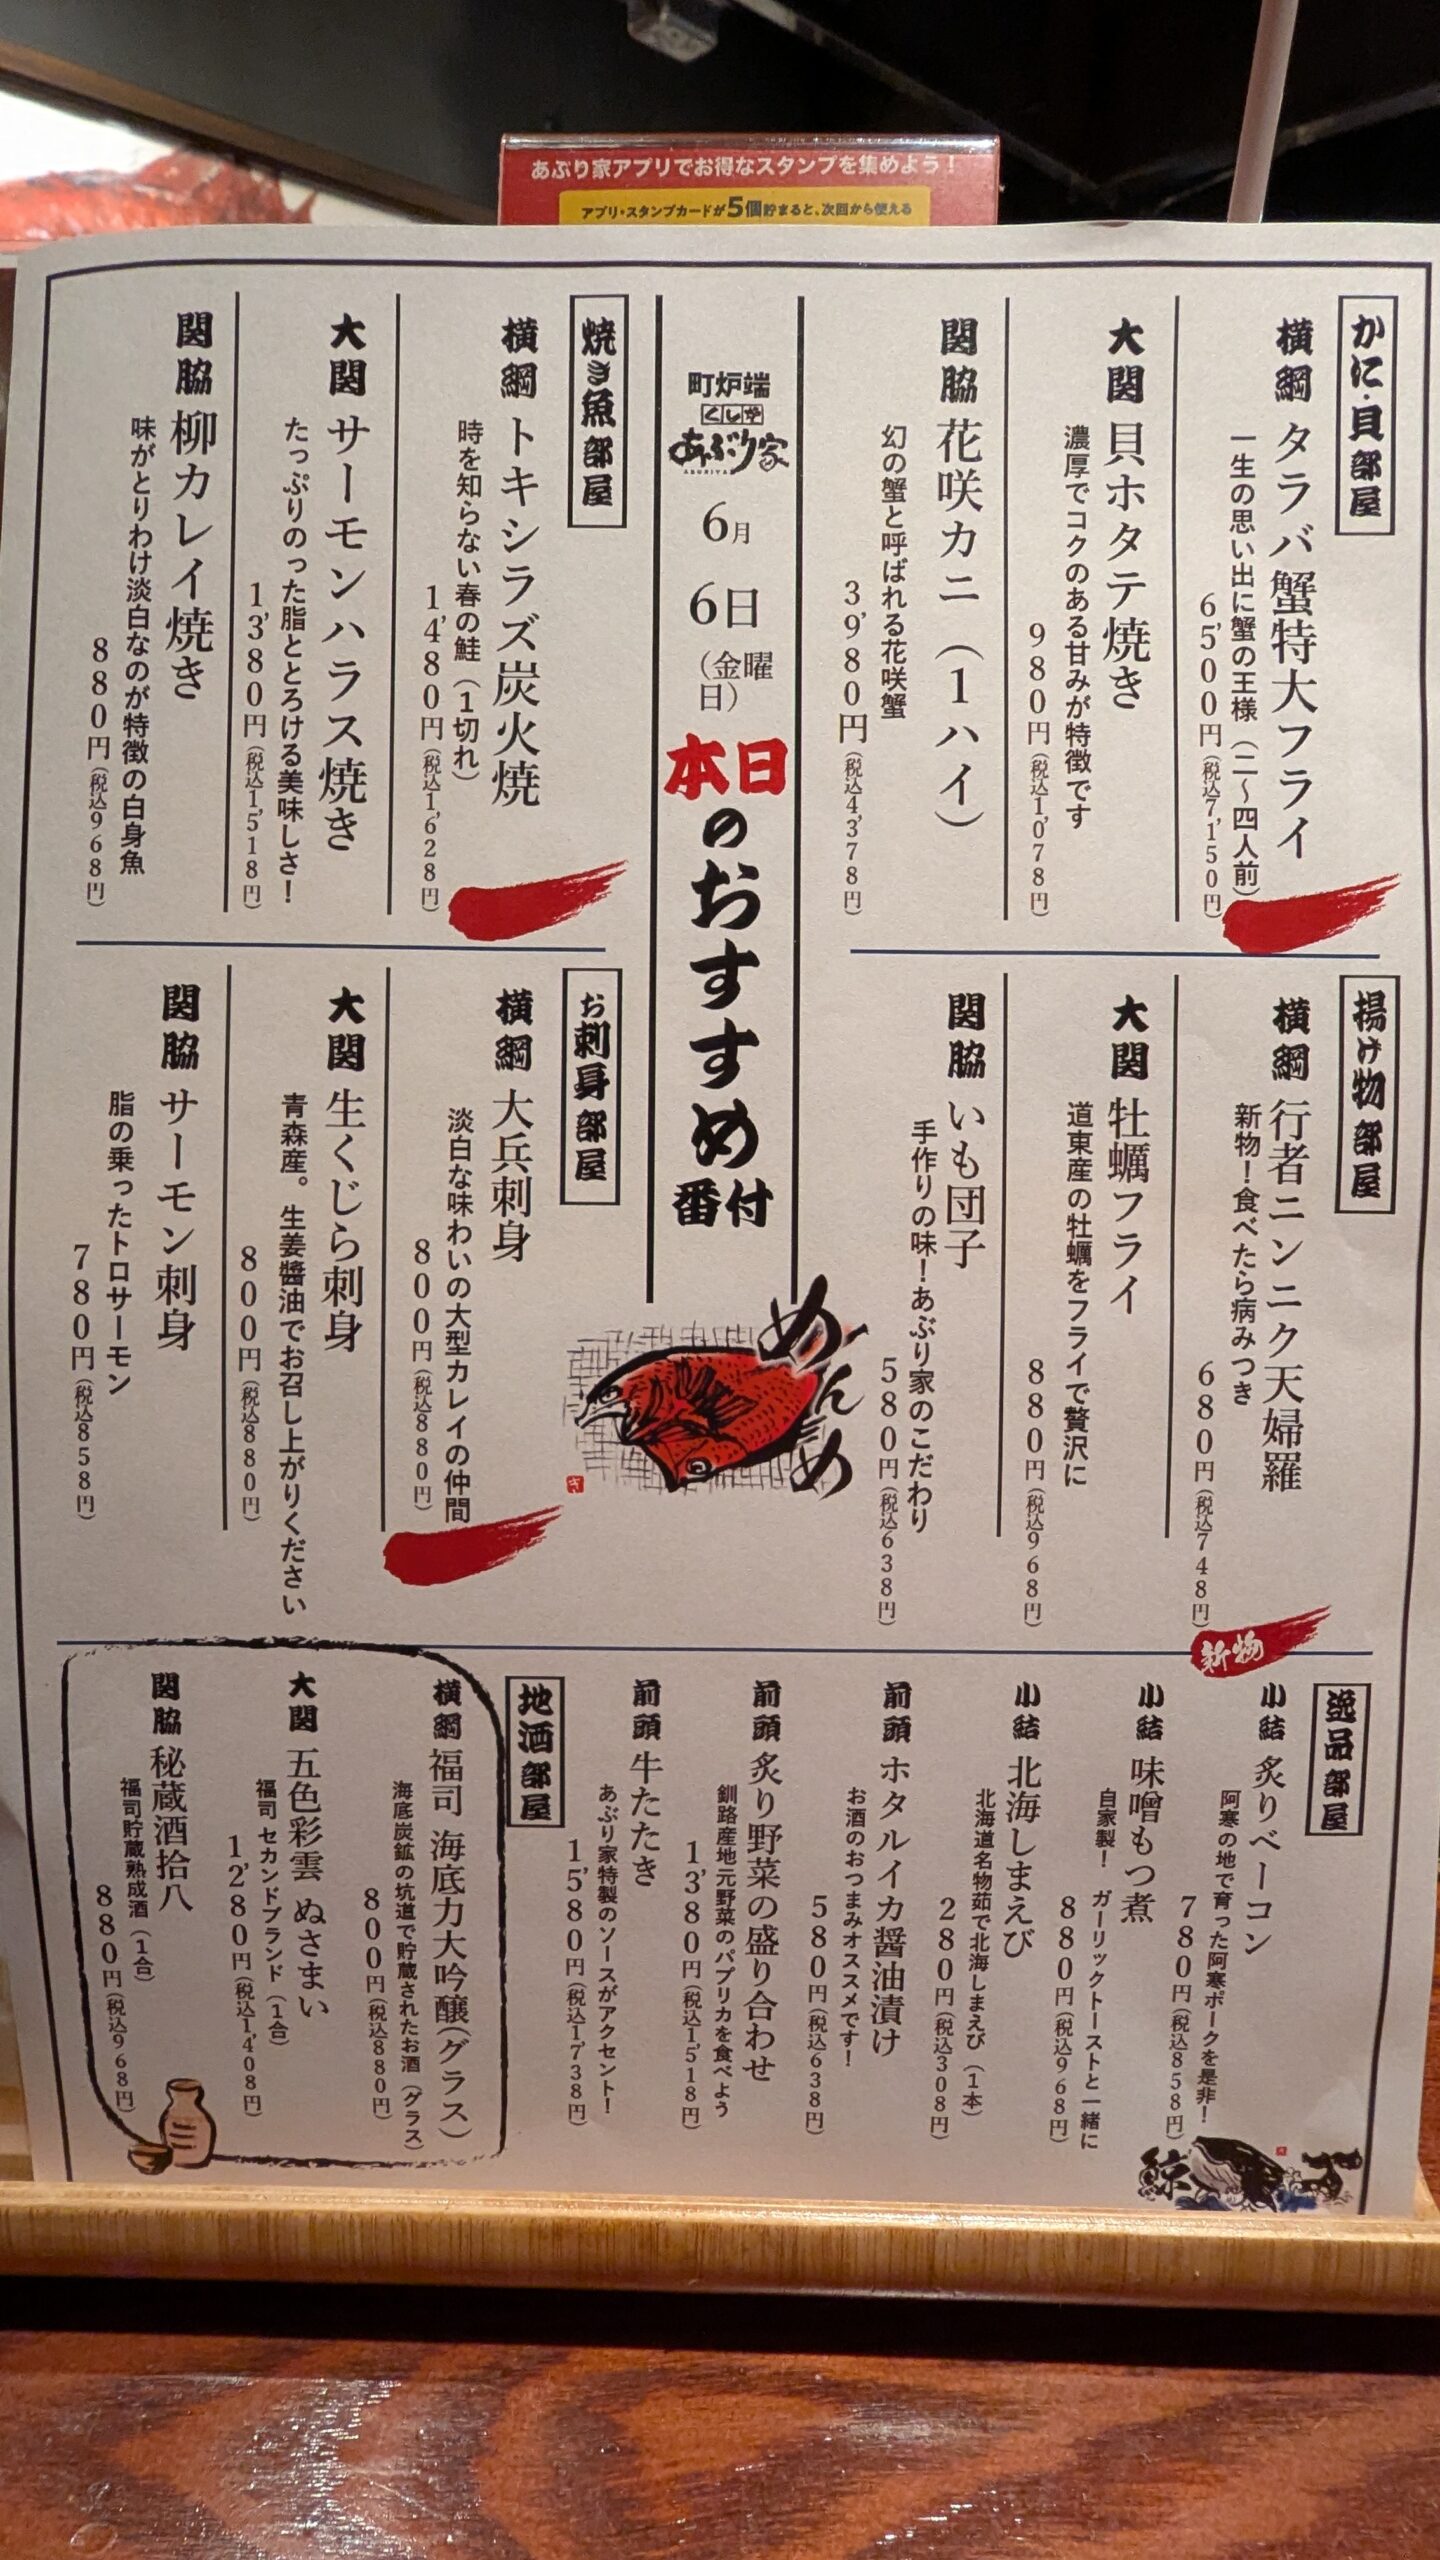 あぶり家アプリでお得なスタンプを集めよう！
アプリ・スタンプカードが5個貯まると、次回から使える
かに・貝部屋
横綱 タラバ蟹特大フライ
一生の思い出に蟹の王様（二〜四人前）
6,500円（税込7,150円）
大関 貝ホタテ焼き
濃厚でコクのある甘みが特徴です
980円（税込1,078円）
関脇 花咲カニ（1ハイ）
幻の蟹と呼ばれる花咲蟹
3,980円（税込4,378円）
揚げ物部屋
横綱 行者ニンニク天婦羅
新物！食べたら病みつき
680円（税込748円）
新物
大関 牡蠣フライ
道東産の牡蠣をフライで贅沢に
880円（税込968円）
関脇 いも団子
手作りの味！あぶり家のこだわり
580円（税込638円）
町炉端
くしろ
あぶり家
ABURIYA
6月
6日
（金曜
日）
本日のおすすめ番付
めんめ
焼き魚部屋
横綱 トキシラズ炭火焼
時を知らない春の鮭（1切れ）
1,480円（税込1,628円）
大関 サーモンハラス焼き
たっぷりのった脂ととろける美味しさ！
1,380円（税込1,518円）
関脇 柳カレイ焼き
味がとりわけ淡白なのが特徴の白身魚
880円（税込968円）
お刺身部屋
横綱 大兵刺身
淡白な味わいの大型カレイの仲間
800円（税込880円）
大関 生くじら刺身
青森産。生姜醬油でお召し上がりください
800円（税込880円）
関脇 サーモン刺身
脂の乗ったトロサーモン
780円（税込858円）
逸品部屋
小結 炙りベーコン
阿寒の地で育った阿寒ポークを是非！
780円（税込858円）
小結 味噌もつ煮
自家製！ ガーリックトーストと一緒に
880円（税込968円）
小結 北海しまえび
北海道名物茹で北海しまえび（1本）
280円（税込308円）
前頭 ホタルイカ醤油漬け
お酒のおつまみオススメです！
580円（税込638円）
前頭 炙り野菜の盛り合わせ
釧路産地元野菜のパプリカを食べよう
1,380円（税込1,518円）
前頭 牛たたき
あぶり家特製のソースがアクセント！
1,580円（税込1,738円）
地酒部屋
横綱 福司 海底力大吟醸（グラス）
海底炭鉱の坑道で貯蔵されたお酒（グラス）
800円（税込880円）
大関 五色彩雲 ぬさまい
福司 セカンドブランド（1合）
1,280円（税込1,408円）
関脇 秘蔵酒拾八
福司貯蔵熟成酒（1合）
880円（税込968円）
鯨